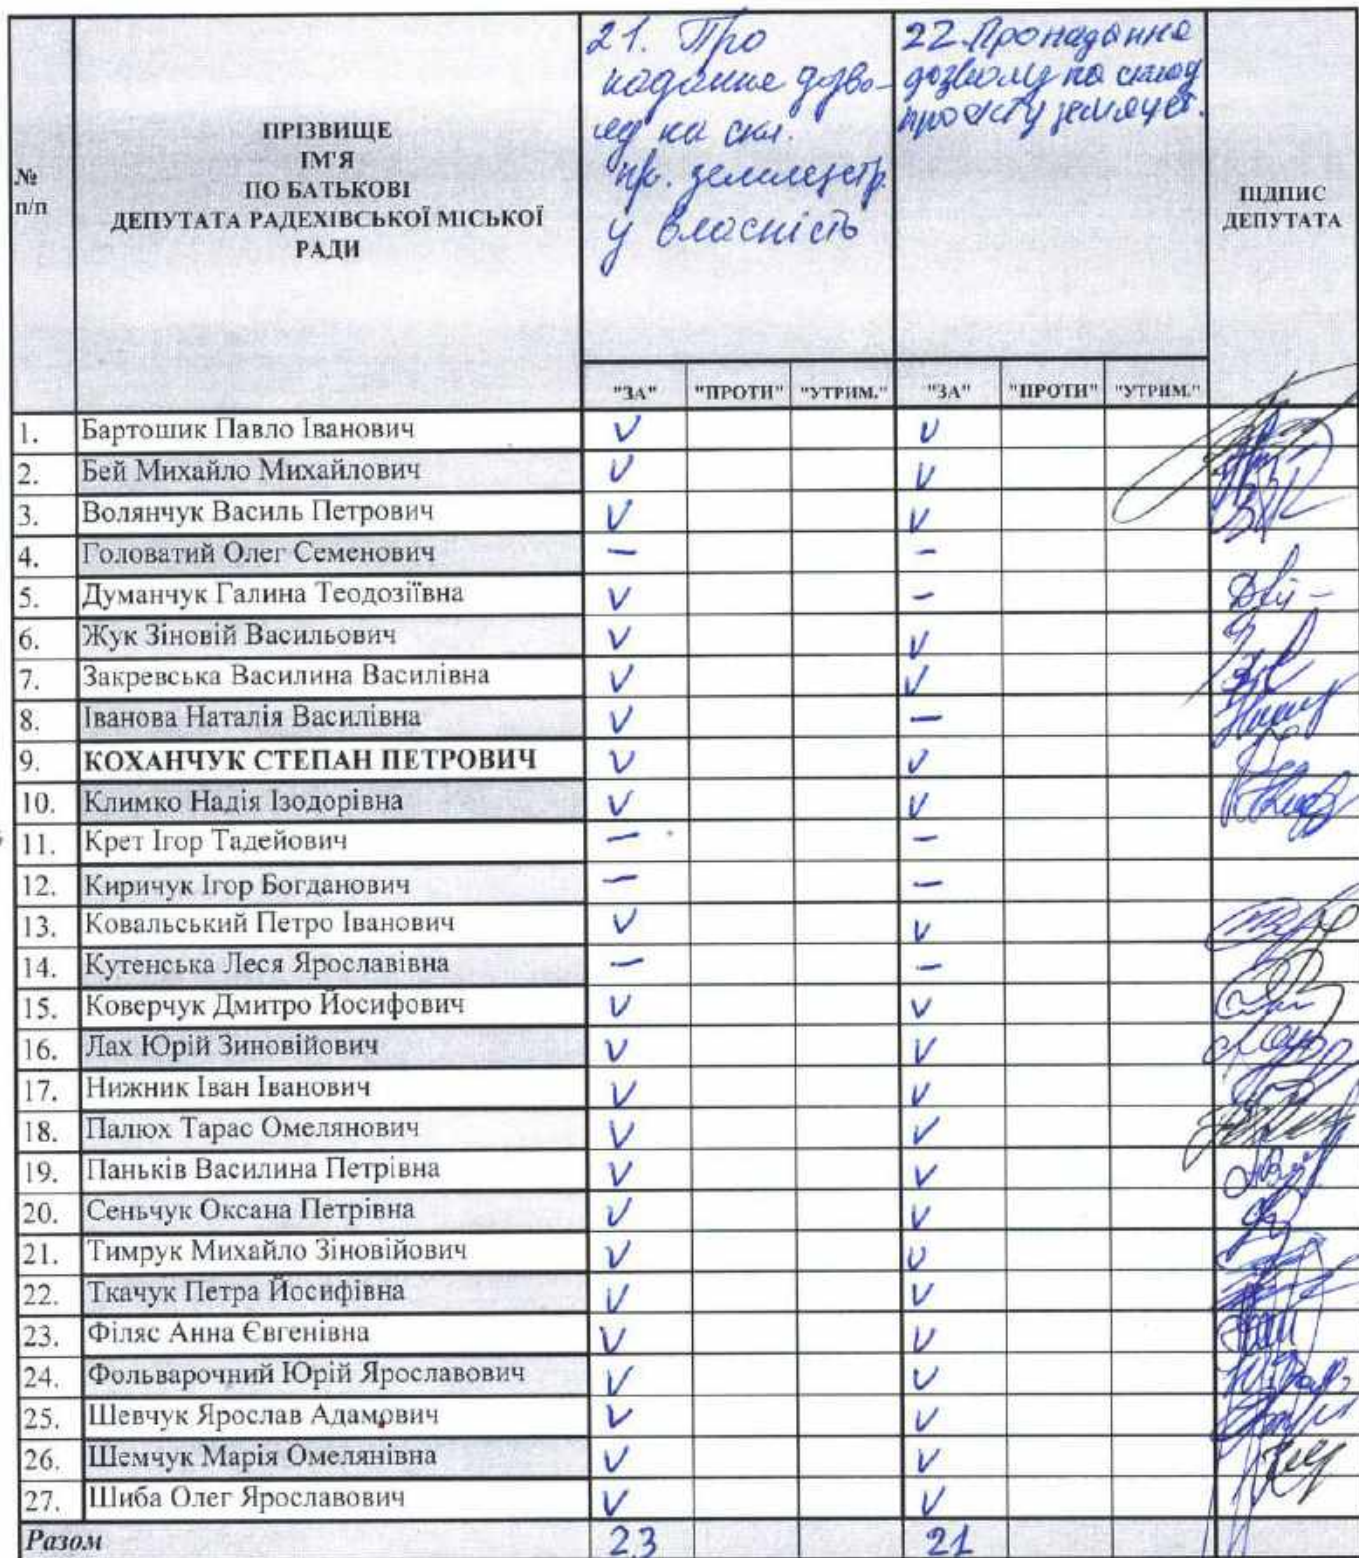 №
п/п
ПРІЗВИЩЕ
ІМ'Я
ПО БАТЬКОВІ
ДЕПУТАТА РАДЕХІВСЬКОЇ МІСЬКОЇ
РАДИ
21. Про
надання дозво-
лу на скл.
пр. землеустр.
у власність
22. Про надання
дозволу на склад
проєкту землеуст.
ПІДПИС
ДЕПУТАТА
"ЗА" "ПРОТИ" "УТРИМ." "ЗА" "ПРОТИ" "УТРИМ."
1. Бартошик Павло Іванович V V
2. Бей Михайло Михайлович V V
3. Волянчук Василь Петрович V V
4. Головатий Олег Семенович – –
5. Думанчук Галина Теодозіївна V –
6. Жук Зіновій Васильович V V
7. Закревська Василина Василівна V V
8. Іванова Наталія Василівна V –
9. КОХАНЧУК СТЕПАН ПЕТРОВИЧ V V
10. Климко Надія Ізодорівна V V
11. Крет Ігор Тадейович – –
12. Киричук Ігор Богданович – –
13. Ковальський Петро Іванович V V
14. Кутенська Леся Ярославівна – –
15. Коверчук Дмитро Йосифович V V
16. Лах Юрій Зиновійович V V
17. Нижник Іван Іванович V V
18. Палюх Тарас Омелянович V V
19. Паньків Василина Петрівна V V
20. Сеньчук Оксана Петрівна V V
21. Тимрук Михайло Зіновійович V V
22. Ткачук Петра Йосифівна V V
23. Філяс Анна Євгенівна V V
24. Фольварочний Юрій Ярославович V V
25. Шевчук Ярослав Адамович V V
26. Шемчук Марія Омелянівна V V
27. Шиба Олег Ярославович V V
Разом 23 21